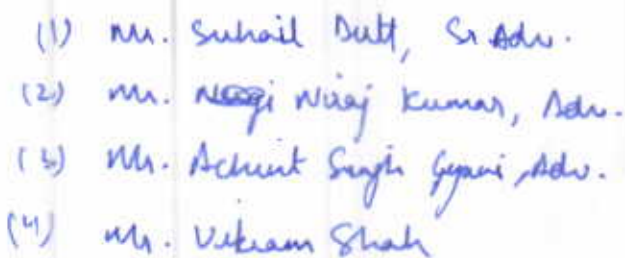 (1) Mr. Suhail Dutt, Sr Adv.
(2) Mr. Niraj Kumar, Adv.
(3) Mr. Achint Singh Gyani, Adv.
(4) Mr. Vikram Shah